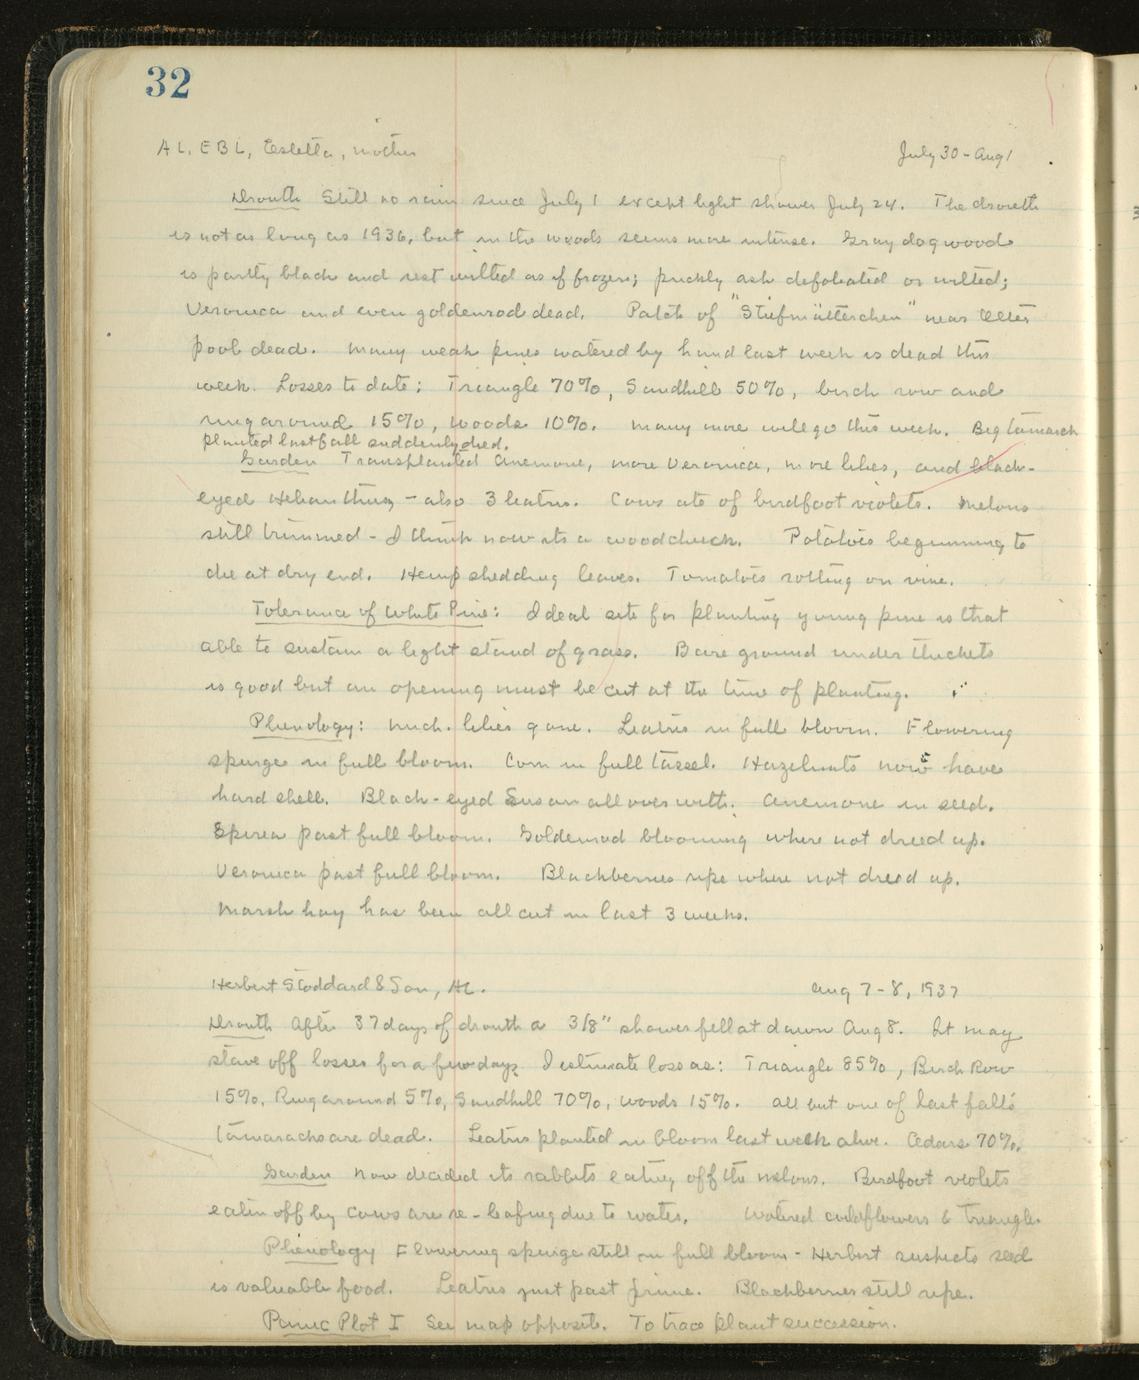 32
AL, EBL, Estella, mother July 30 - Aug 1
Drouth Still no rain since July 1 except light shower July 24. The drouth
is not as long as 1936, but in the woods seems more intense. Gray dogwood
is partly black and rest wilted as if frozen; prickly ash defoliated or wilted;
Veronica and even goldenrod dead. Patch of "Stiefmütterchen" near Otter
pool dead. Many weak pines watered by hand last week is dead this
week. Losses to date: Triangle 70%, Sandhill 50%, birch row and
ring around 15%, woods 10%. Many more will go this week. Big tamarack
planted last fall suddenly died.
Garden Transplanted anemone, more Veronica, more lilies, and black-
eyed Helianthus - also 3 leatris. Cows ate of birdfoot violets. Melons
still trimmed - I think now its a woodchuck. Potatoes beginning to
die at dry end. Hemp shedding leaves. Tomatoes rotting on vine.
Tolerance of White Pine: Ideal site for planting young pine is that
able to sustain a light stand of grass. Bare ground under thickets
is good but an opening must be cut at the time of planting.
Phenology: Mich. lilies gone. Leatris in full bloom. Flowering
spurge in full bloom. Corn in full tassel. Hazelnuts now have
hard shell. Black-eyed Susan all over with. Anemone in seed.
Spirea past full bloom. Goldenrod blooming where not dried up.
Veronica past full bloom. Blackberries ripe where not dried up.
Marsh hay has been all cut in last 3 weeks.
Herbert Stoddard & Son, AL. Aug 7-8, 1937
Drouth After 37 days of drouth a 3/8" shower fell at dawn Aug 8. It may
stave off losses for a few days. I estimate loss as: Triangle 85%, Birch Row
15%, Ring around 5%, Sandhill 70%, woods 15%. All but one of last fall's
tamaracks are dead. Leatris planted in bloom last week alive. Cedars 70%.
Garden Now decided its rabbits eating off the melons. Birdfoot violets
eaten off by cows are re-leafing due to water. Watered wildflowers & Triangle.
Phenology Flowering spurge still in full bloom - Herbert suspects seed
is valuable food. Leatris just past prime. Blackberries still ripe.
Panic Plot I See map opposite. To trace plant succession.